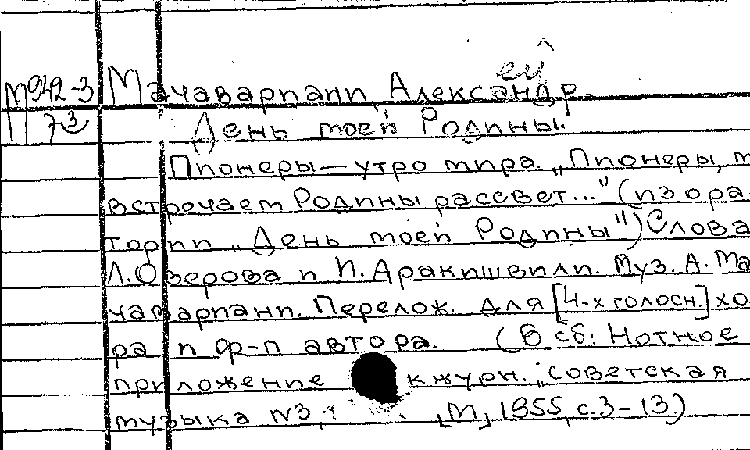 ей
М942-3 Мачавариани, Александр.
73 День моей Родины.
Пионеры—утро мира. „Пионеры, м
встречаем Родины рассвет..." (из ора
тории „День моей Родины") Слова
Л. Озерова и И. Аракишвили. Муз. А. Ма
чавариани. Перелож. для [4-х голосн.] хо
ра и ф-п автора. (В сб: Нотное
приложение к журн. „Советская
музыка №3, М, 1955, с. 3-13)